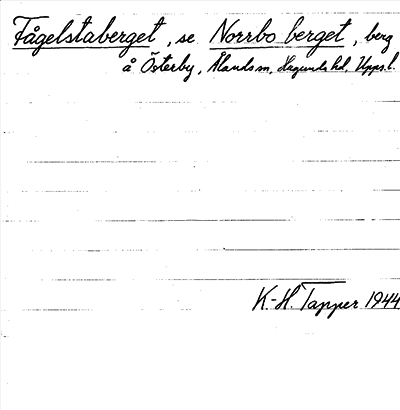 Fågelstaberget, se Norrbo berget, berg
å Österby, Ålands sn, Hagunda hd, Upps.l.
K.-H. Tapper 1944